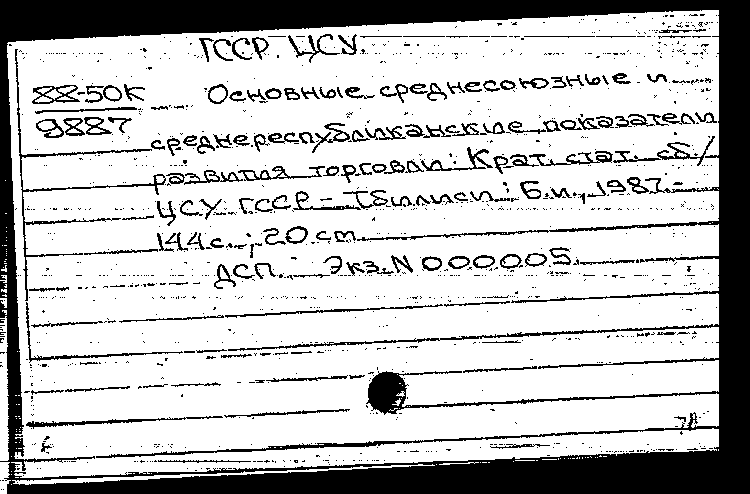 ГССР. ЦСУ.
88-50К Основные среднесоюзные и
9887 среднереспубликанские показатели
развития торговли: Крат. стат. сб./
ЦСУ ГССР.- Тбилиси: Б.и., 1987.-
144с.; 20 см.
ДСП. Экз. N 000005.